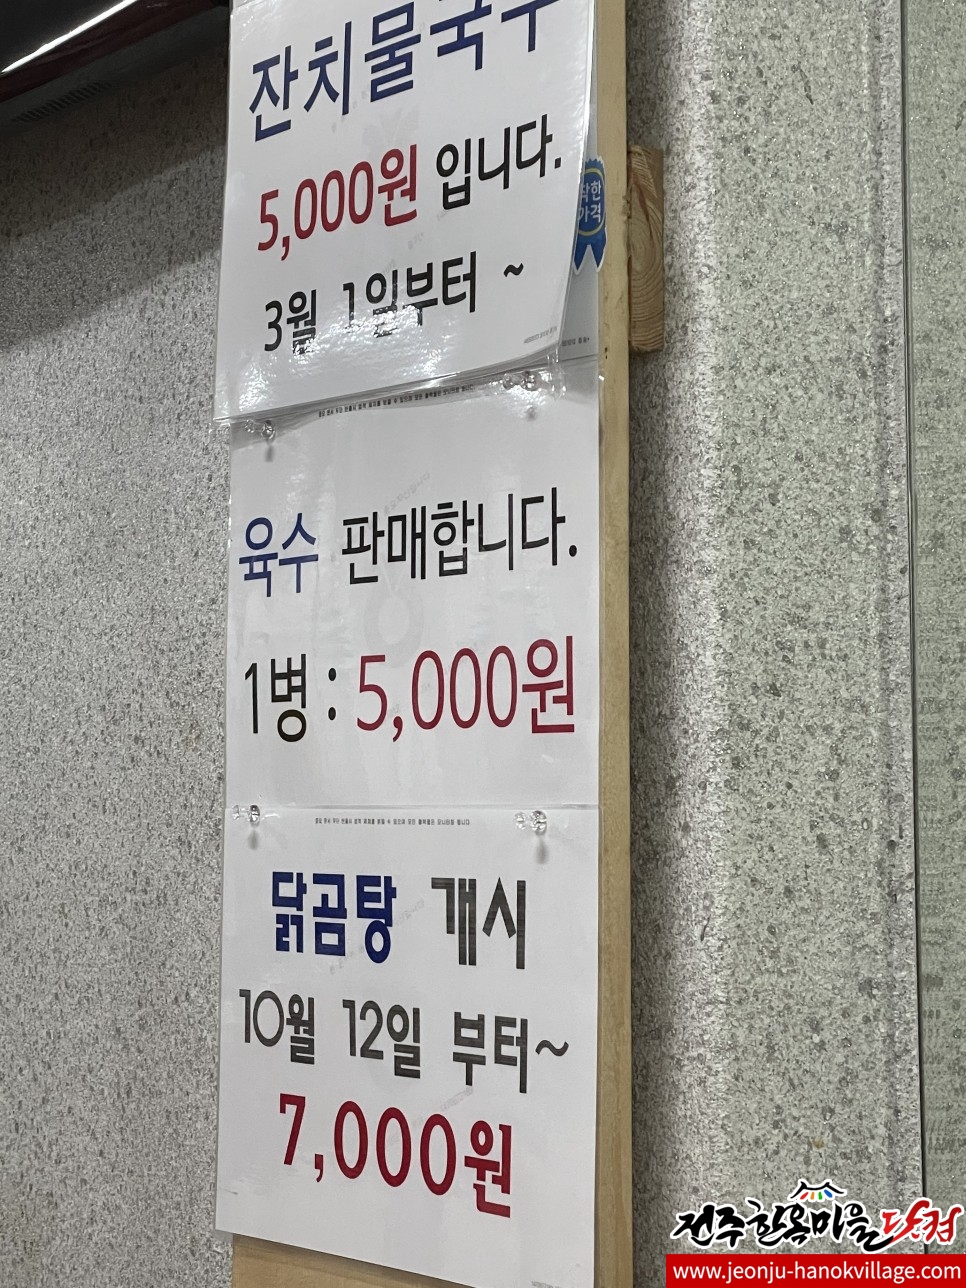 잔치물국수
5,000원 입니다.
3월 1일부터 ~
착한
가격
육수 판매합니다.
1병 : 5,000원
닭곰탕 개시
10월 12일 부터~
7,000원
전주한옥마을닷컴
www.jeonju-hanokvillage.com